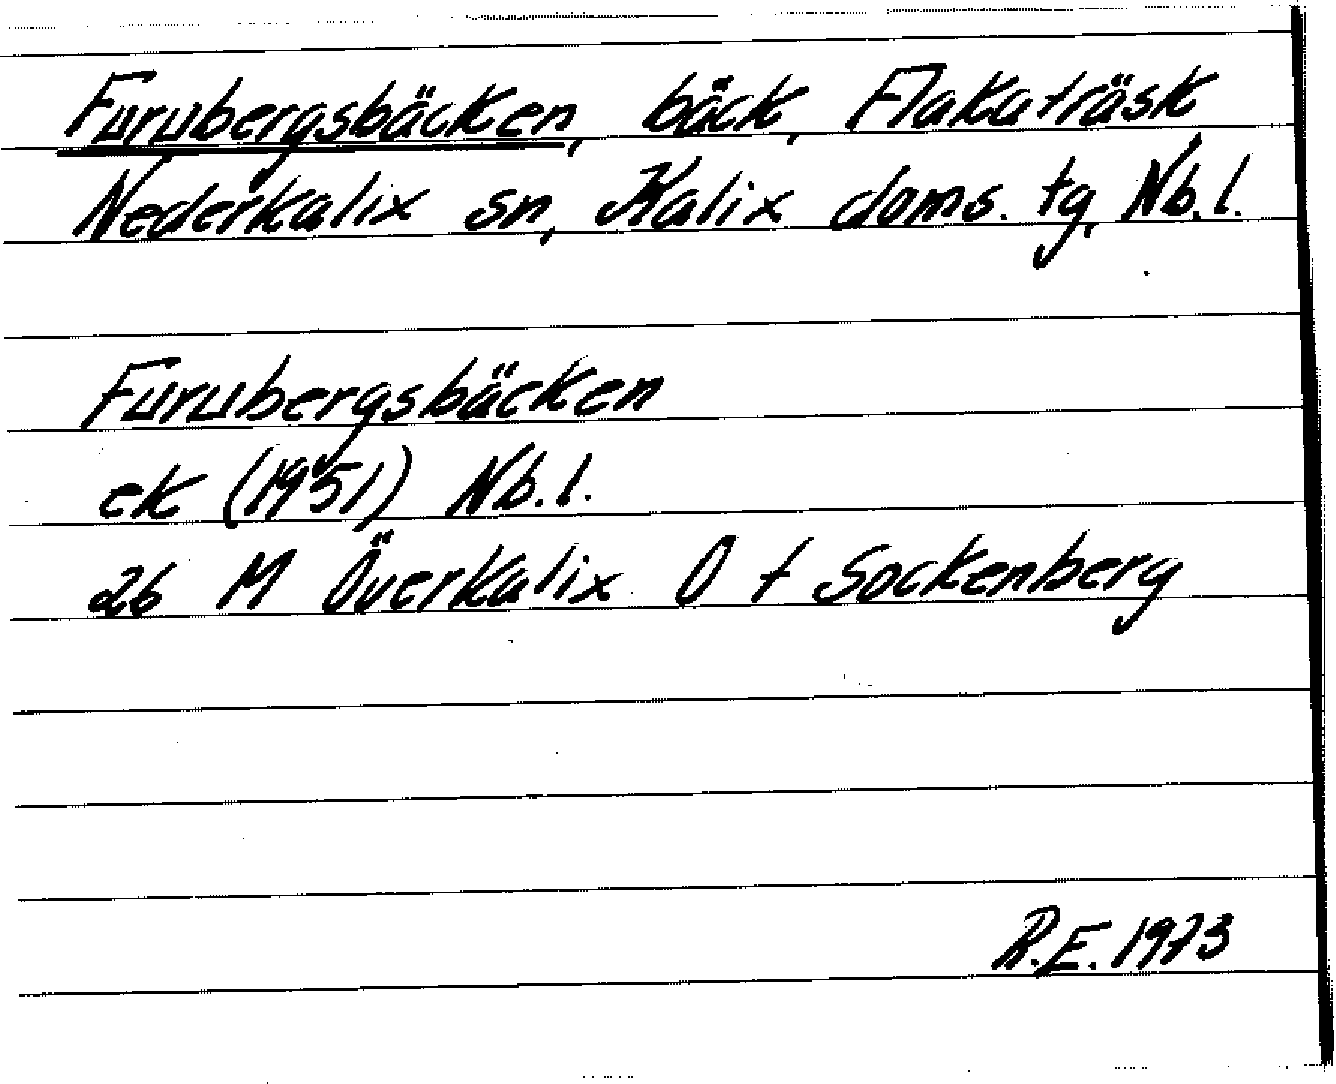 Furubergsbäcken, bäck, Flakaträsk
Nederkalix sn, Kalix doms. tg, Nb.l.
Furubergsbäcken
ek (1951) Nb.l.
26 M Överkalix O t Sockenberg
R.E. 1973